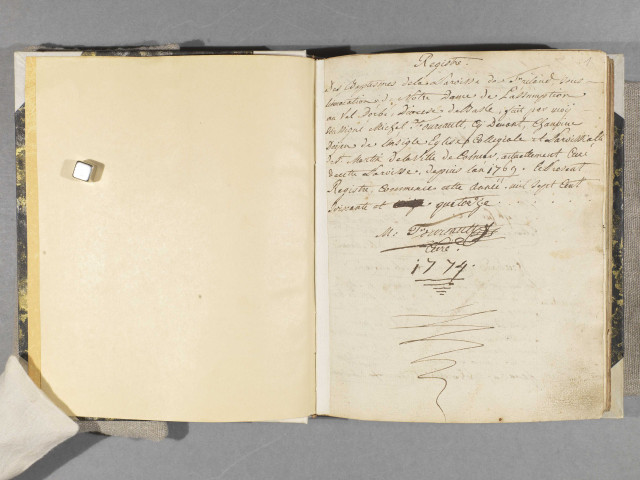 Registre.
Des Baptesmes de la Paroisse de sous
l'invocation de Notre Dame de l'assomption
au Val Diocese de Basle, fait par moy
Michel Tournoutt, Cy Devant, Chanoine
de l'insigle Eglise Collegiale et Paroissiale
de st Martin de la ville de Colmar, actuellement Curé
de cette Paroisse, depuis l'an 1769. le present
Registre commence cette année mil sept Cent
soixante et quatorze
M:
Curé.
1774.